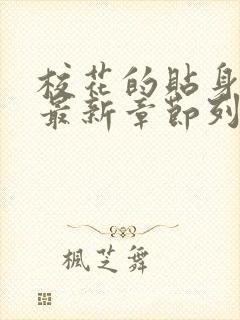 校花的貼身
最新章節列
楓芝舞